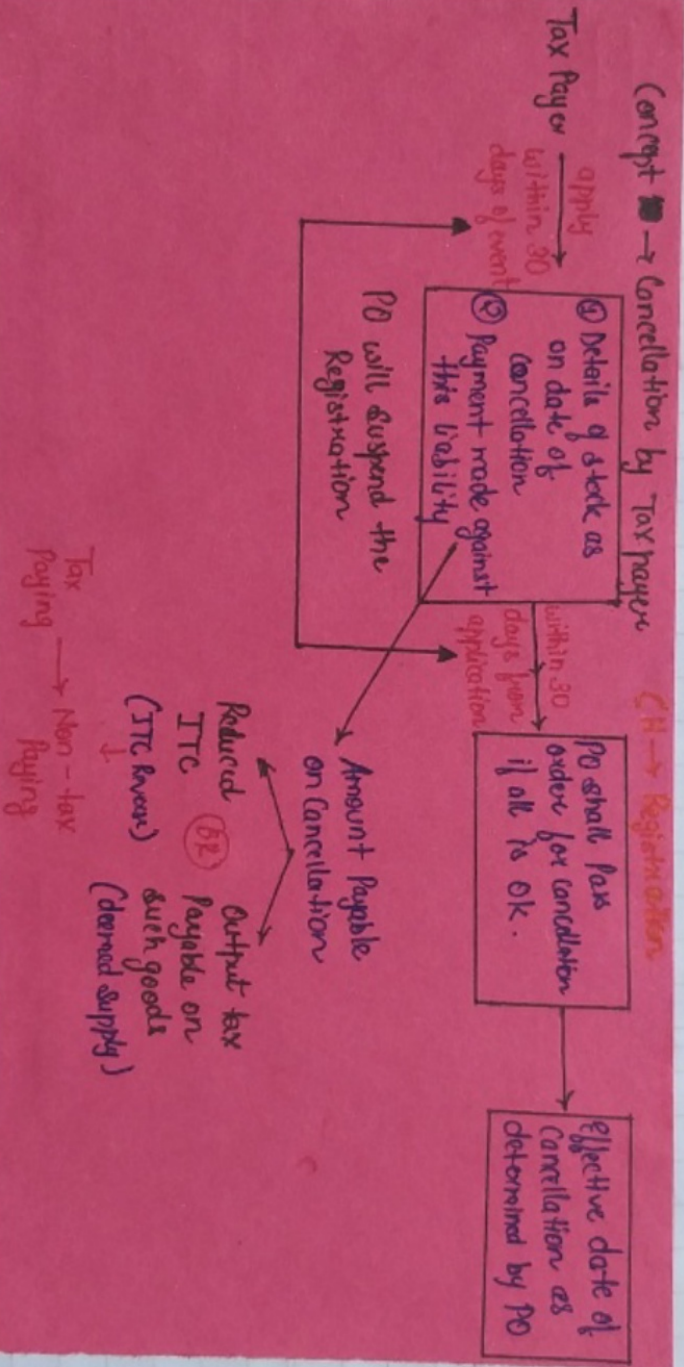 CH → Registration
Concept → Cancellation by Taxpayer
Tax Payer
apply
within 30
days of event
① Details of stock as
on date of
cancellation
② Payment made against
this liability
within 30
days from
application
PO shall Pass
order for cancellation
if all is Ok.
effective date of
Cancellation as
determined by PO
PO will suspend the
Registration
Amount Payable
on Cancellation
Reduced
ITC
(ITC Reverse)
OR
Output tax
Payable on
such goods
(deemed supply)
Tax
Paying → Non-tax
Paying